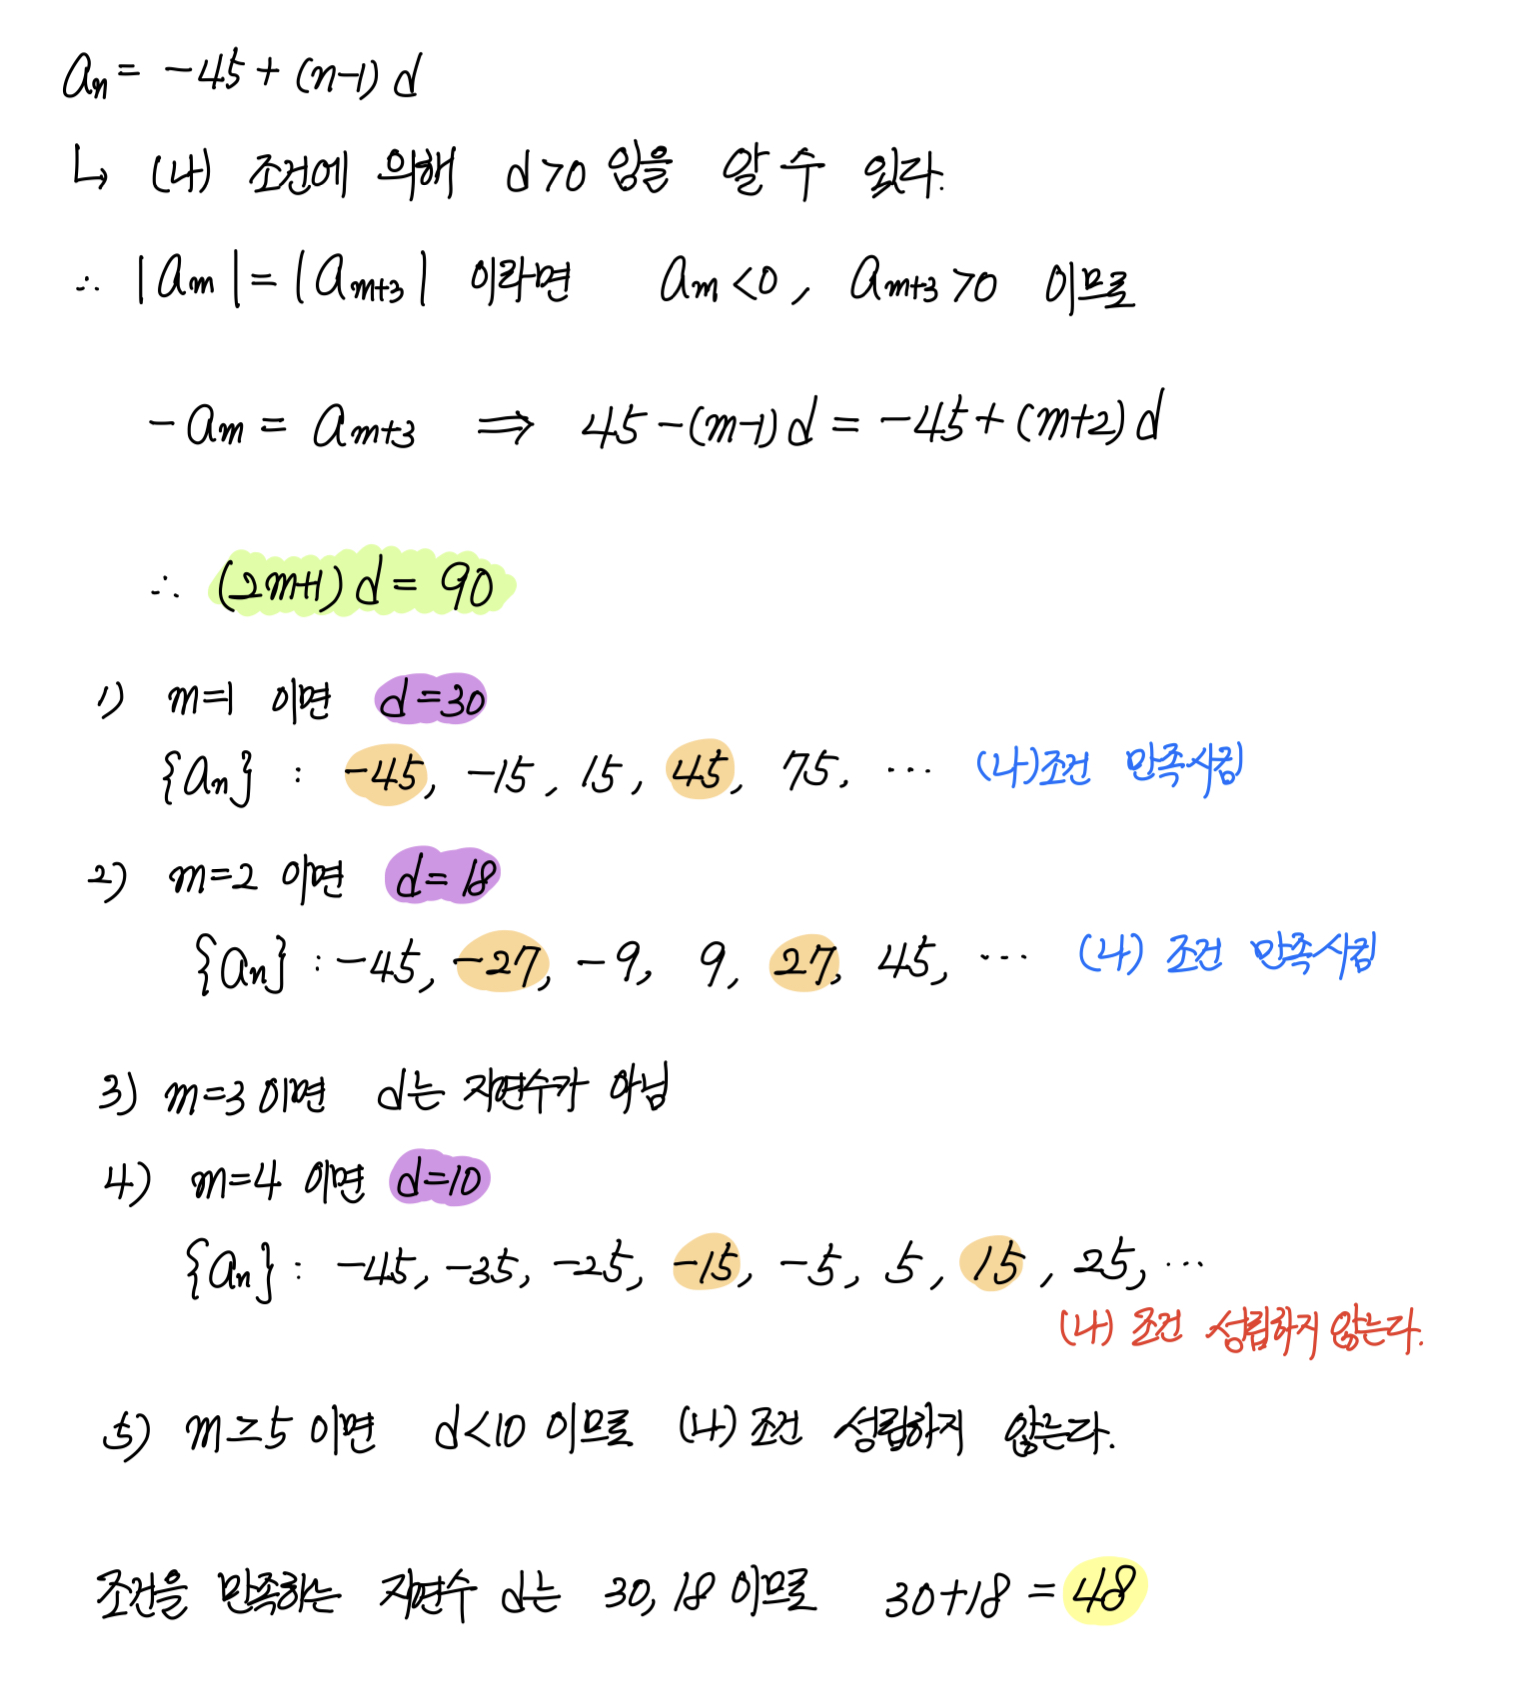 aₙ = -45 + (n-1) d
↳ (나) 조건에 의해 d>0 임을 알 수 있다.
∴ |aₘ| = |aₘ₊₃| 이라면 aₘ<0, aₘ₊₃>0 이므로
-aₘ = aₘ₊₃ ⇒ 45-(m-1)d = -45+(m+2)d
∴ (2m+1)d = 90
1) m=1 이면 d=30
{aₙ} : -45, -15, 15, 45, 75, ⋯ (나)조건 만족시킴
2) m=2 이면 d=18
{aₙ} : -45, -27, -9, 9, 27, 45, ⋯ (나) 조건 만족시킴
3) m=3 이면 d는 자연수가 아님
4) m=4 이면 d=10
{aₙ} : -45, -35, -25, -15, -5, 5, 15, 25, ⋯
(나) 조건 성립하지 않는다.
5) m≥5 이면 d<10 이므로 (나) 조건 성립하지 않는다.
조건을 만족하는 자연수 d는 30, 18 이므로 30+18 = 48